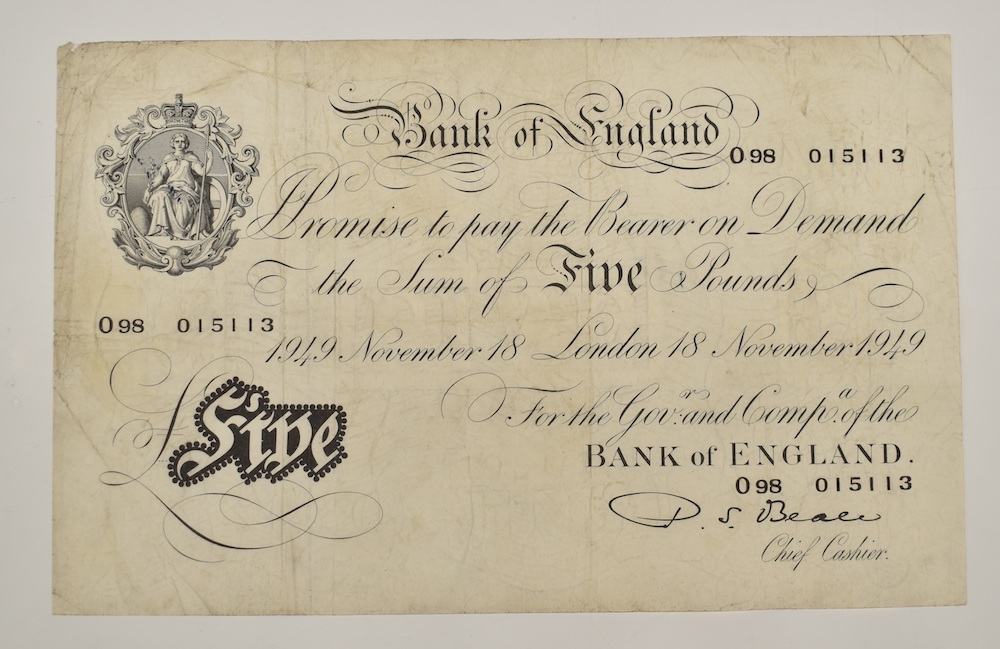 Bank of England
O98 015113
I Promise to pay the Bearer on Demand
the Sum of Five Pounds
O98 015113
1949 November 18 London 18 November 1949
£Five
For the Gov.r and Comp.a of the
BANK of ENGLAND.
O98 015113
P. S. Beale
Chief Cashier.